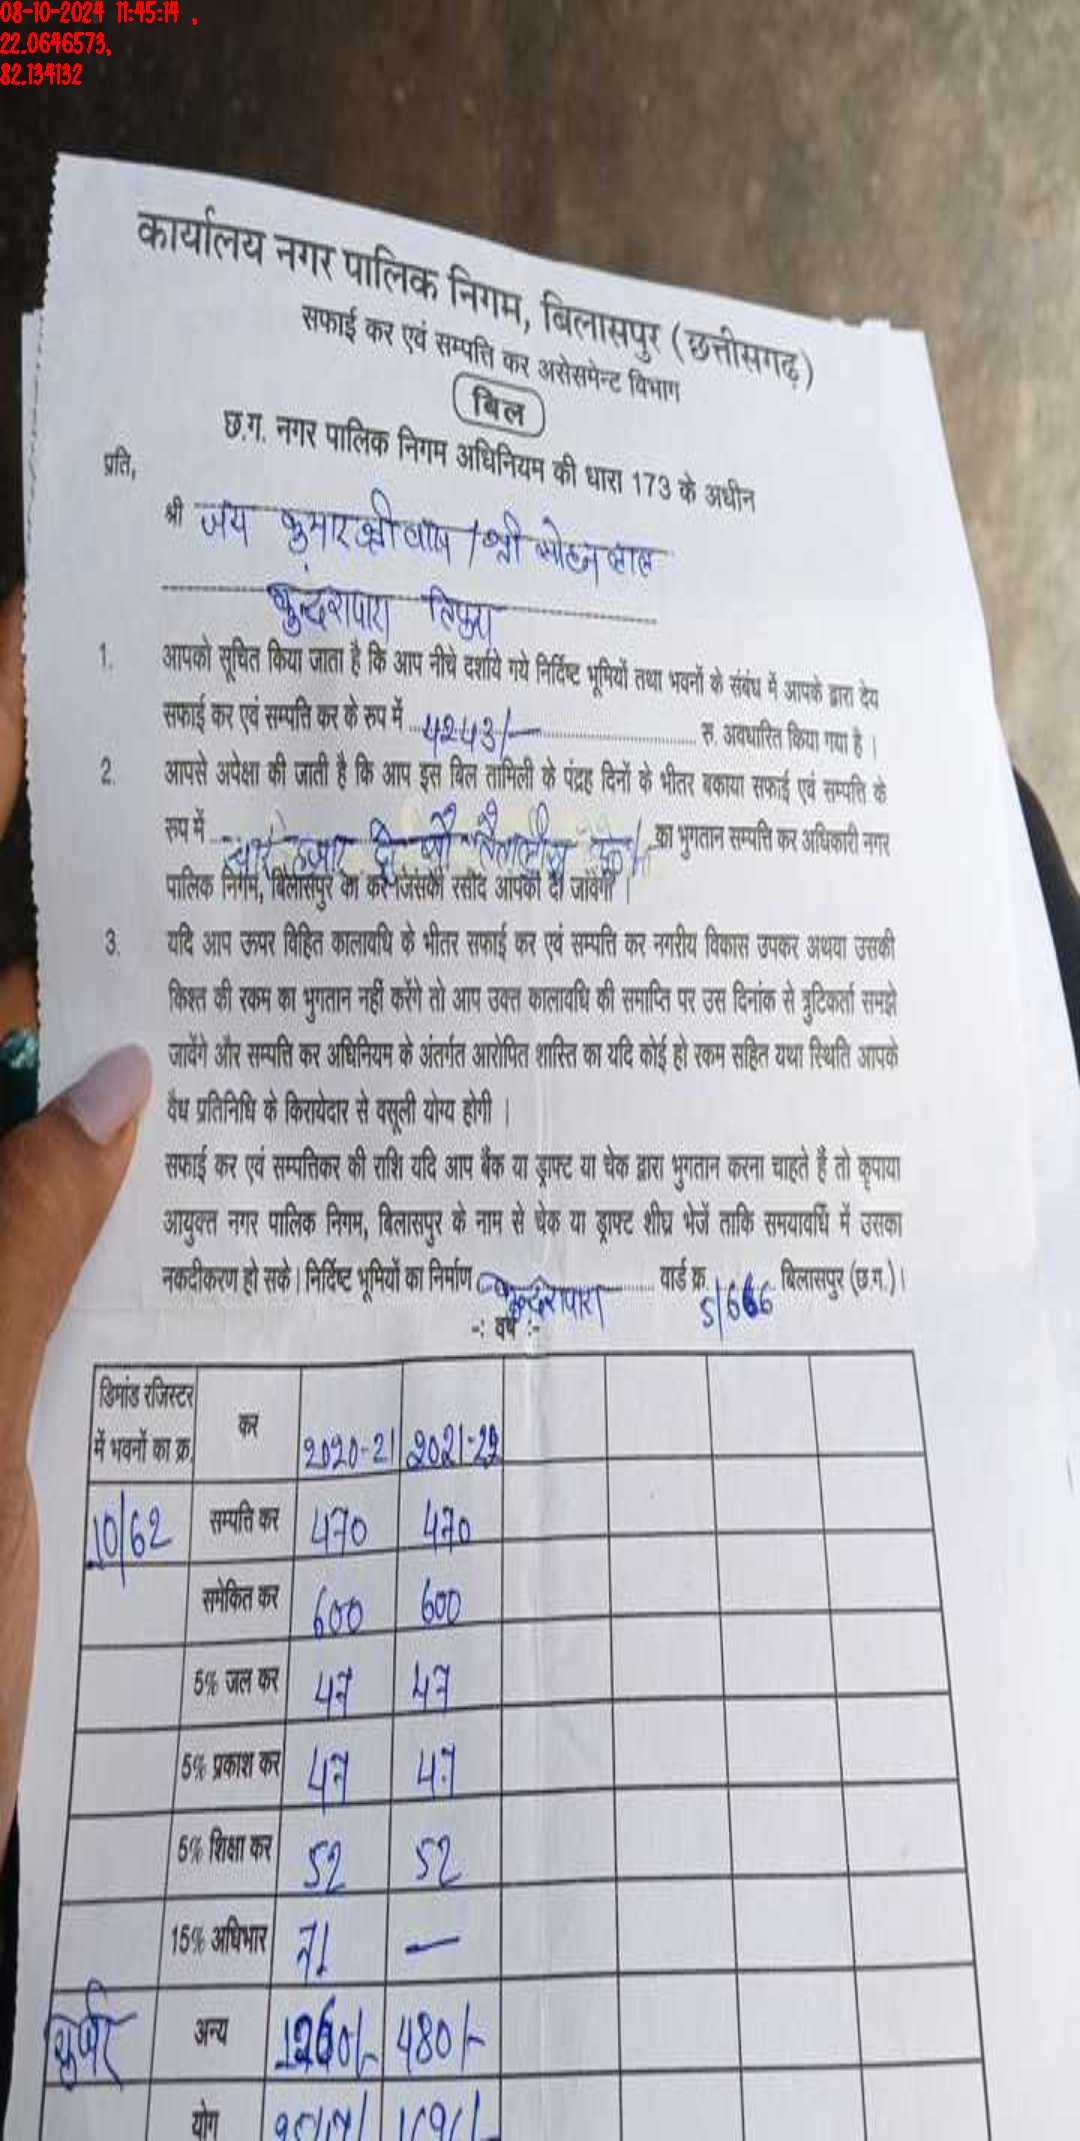 08-10-2024 11:45:14 ,
22.0646573,
82.134132
कार्यालय नगर पालिक निगम, बिलासपुर (छत्तीसगढ़)
सफाई कर एवं सम्पत्ति कर असेसमेन्ट विभाग
बिल
छ.ग. नगर पालिक निगम अधिनियम की धारा 173 के अधीन
प्रति,
श्री जय कुमार श्रीवास / श्री मोहन लाल
कुन्दरापारा तिफरा
1. आपको सूचित किया जाता है कि आप नीचे दर्शाये गये निर्दिष्ट भूमियों तथा भवनों के संबंध में आपके द्वारा देय
सफाई कर एवं सम्पत्ति कर के रूप में 4243/- रु. अवधारित किया गया है ।
2. आपसे अपेक्षा की जाती है कि आप इस बिल तामिली के पंद्रह दिनों के भीतर बकाया सफाई एवं सम्पत्ति के
रूप में चार हजार दो सौ तैतालीस का भुगतान सम्पत्ति कर अधिकारी नगर
पालिक निगम, बिलासपुर का करें जिसकी रसीद आपको दी जावेगी ।
3. यदि आप ऊपर विहित कालावधि के भीतर सफाई कर एवं सम्पत्ति कर नगरीय विकास उपकर अथवा उसकी
किश्त की रकम का भुगतान नहीं करेंगे तो आप उक्त कालावधि की समाप्ति पर उस दिनांक से त्रुटिकर्ता समझे
जावेंगे और सम्पत्ति कर अधिनियम के अंतर्गत आरोपित शास्ति का यदि कोई हो रकम सहित यथा स्थिति आपके
वैध प्रतिनिधि के किरायेदार से वसूली योग्य होगी ।
सफाई कर एवं सम्पत्तिकर की राशि यदि आप बैंक या ड्राफ्ट या चेक द्वारा भुगतान करना चाहते हैं तो कृपाया
आयुक्त नगर पालिक निगम, बिलासपुर के नाम से चेक या ड्राफ्ट शीघ्र भेजें ताकि समयावधि में उसका
नकदीकरण हो सके । निर्दिष्ट भूमियों का निर्माण कुन्दरापारा वार्ड क्र. 5/666 बिलासपुर (छ.ग.)।
-: वर्ष :-
डिमांड रजिस्टर में भवनों का क्र. कर 2020-21 2021-22
10/62 सम्पत्ति कर 470 470
समेकित कर 600 600
5% जल कर 47 47
5% प्रकाश कर 47 47
5% शिक्षा कर 52 52
15% अधिभार 71 —
अन्य 1260/- 480/-
योग